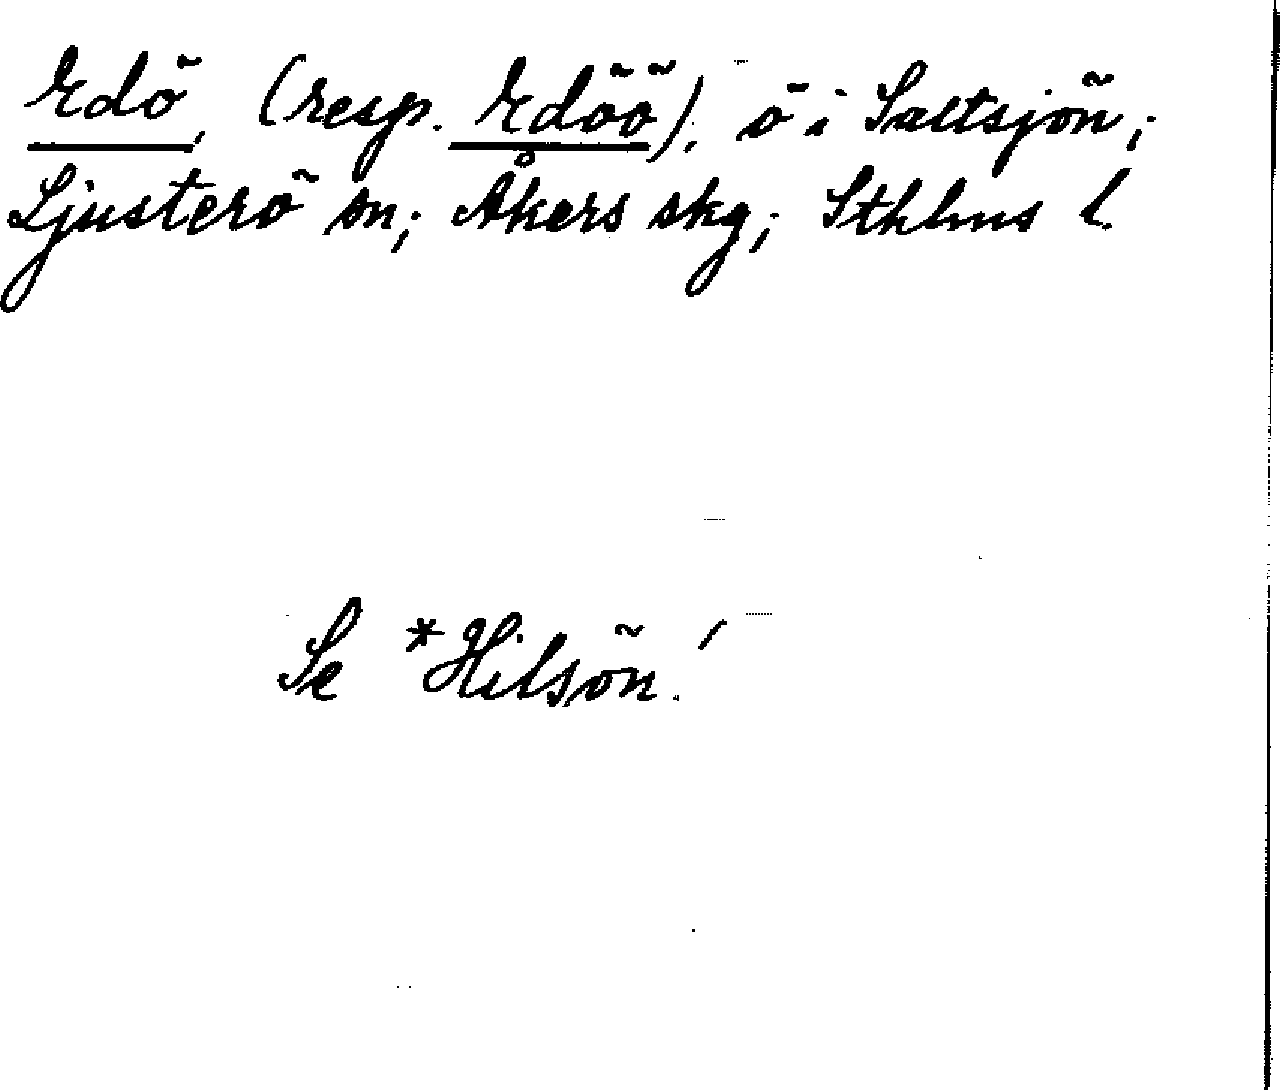 Edö, (resp. Edöö), ö i Saltsjön;
Ljusterö sn; Åkers skg; Sthlms l.
Se *Hilsön!